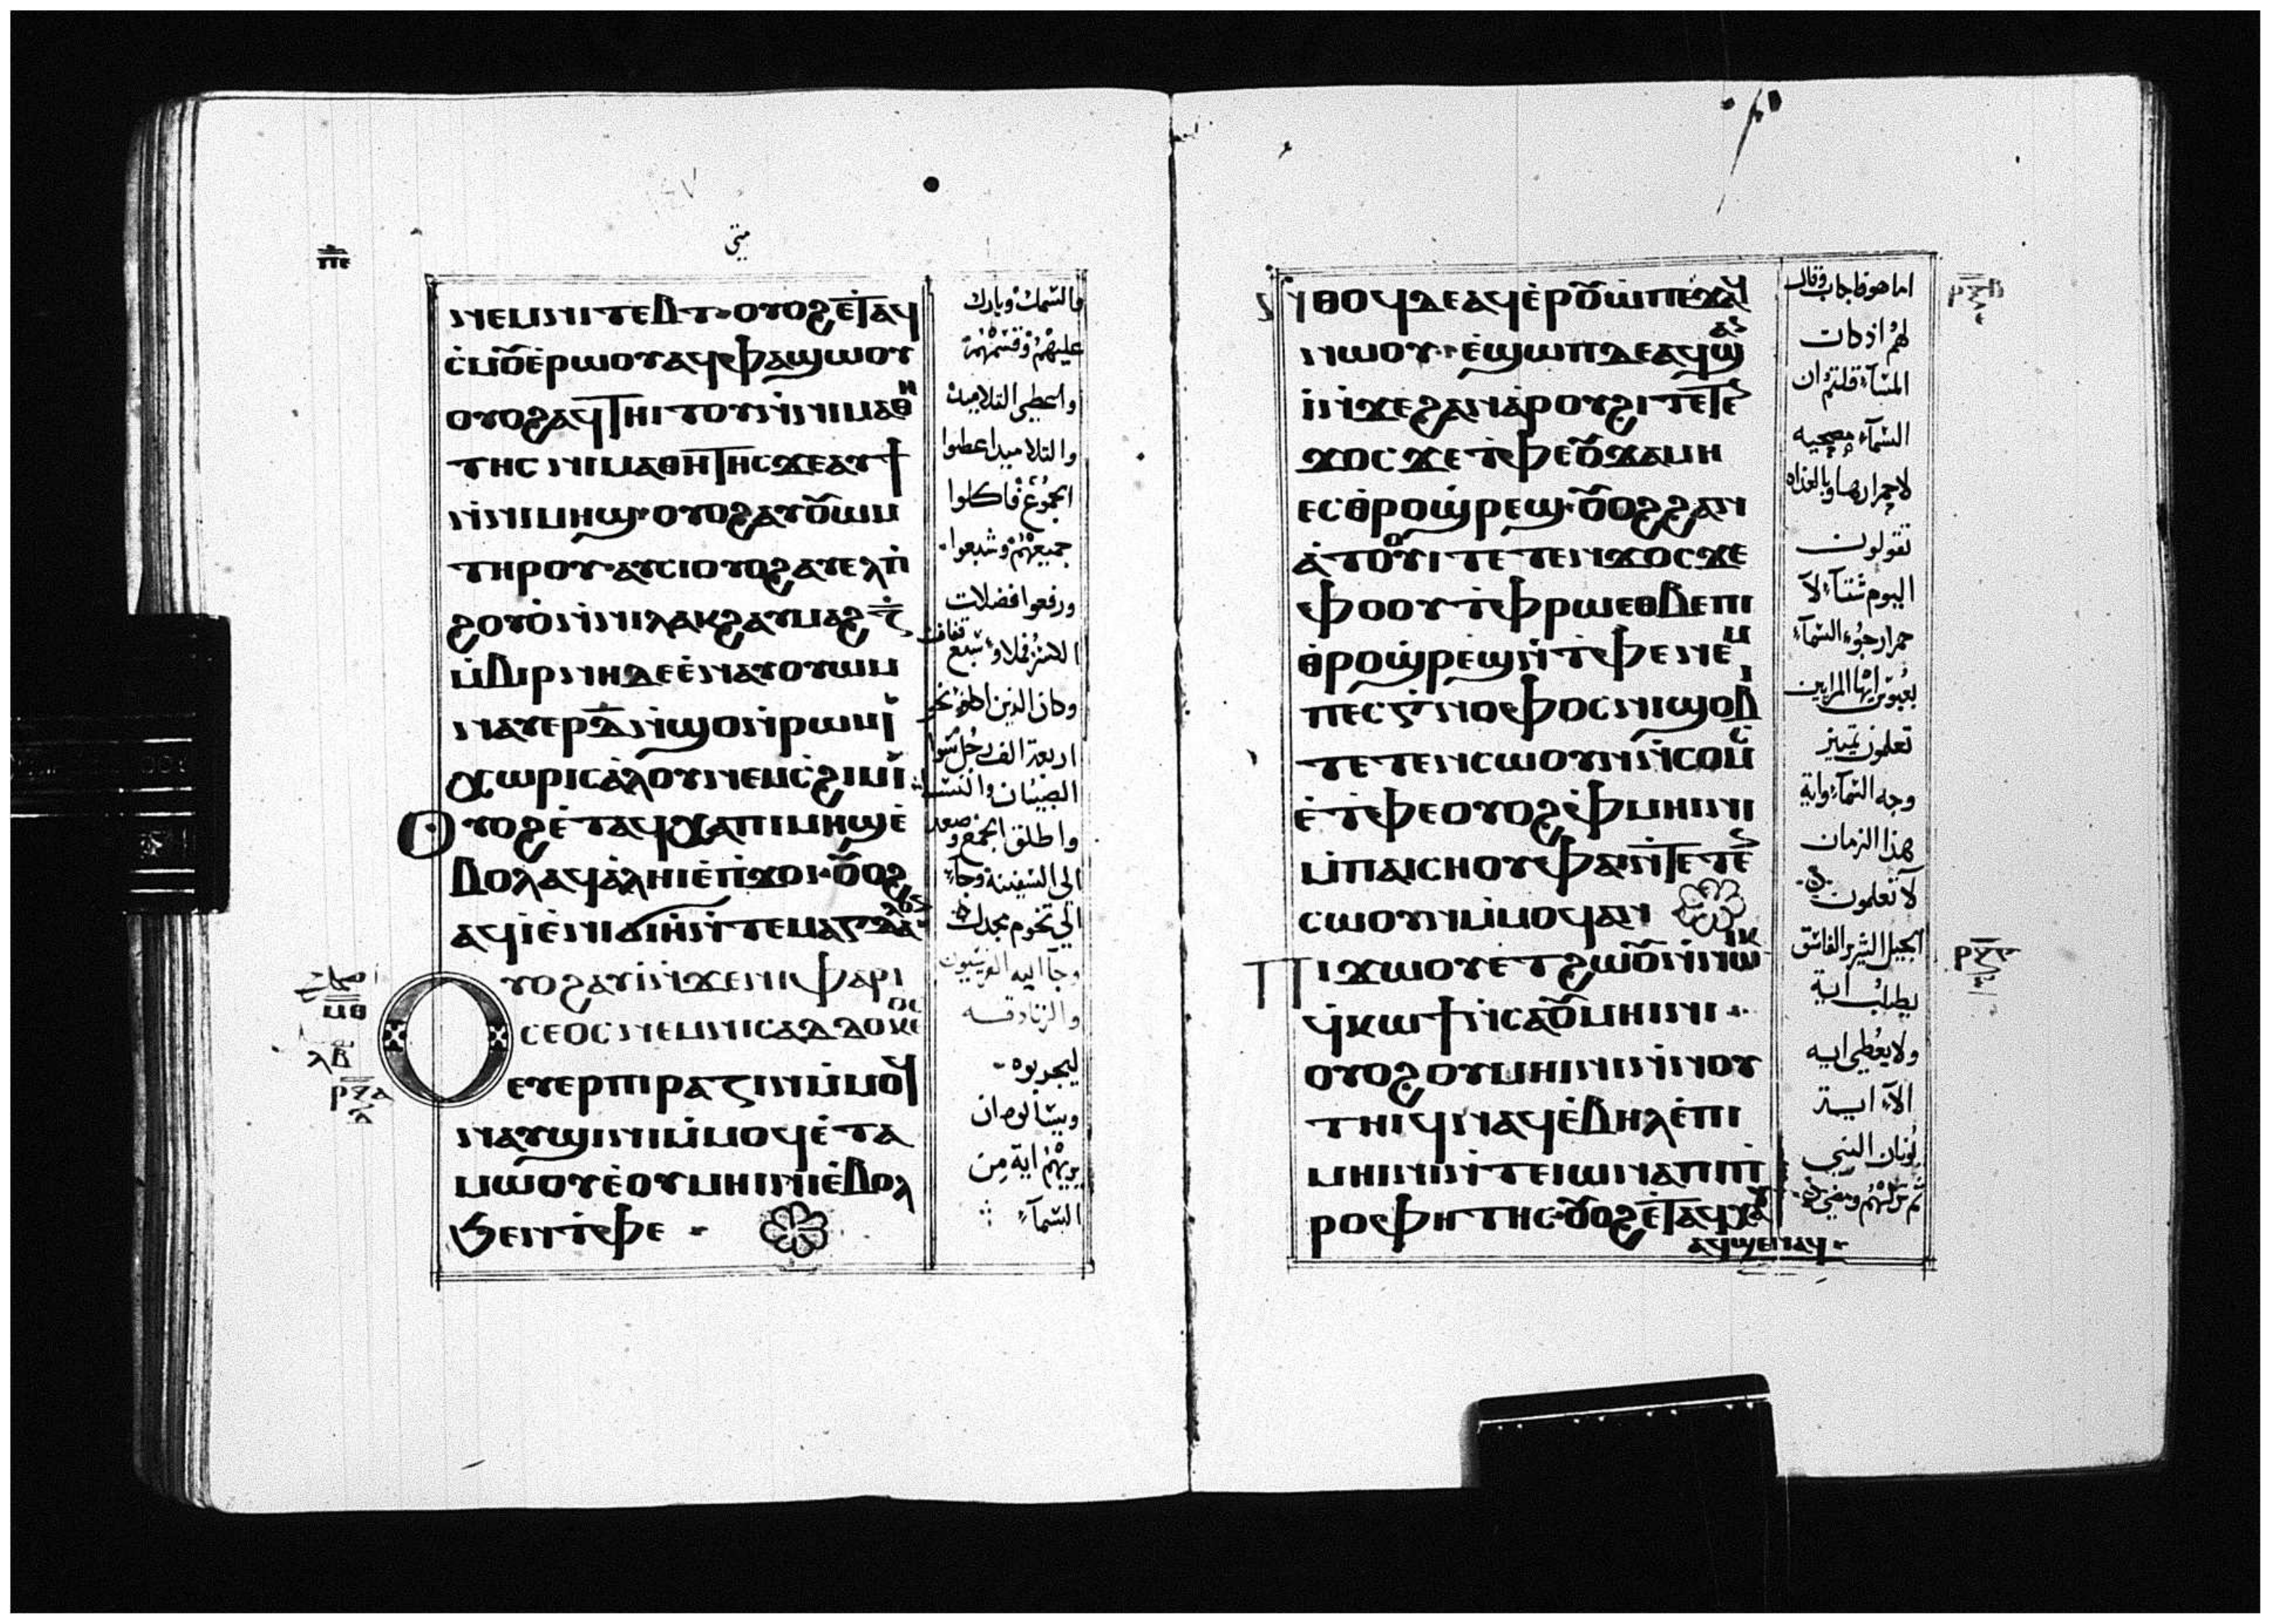 متى
ⲡⲉ
ⲛⲉⲙⲛⲓⲧⲉⲃⲧ· ⲟⲩⲟϩⲉⲧⲁϥ
ⲥ̀ⲙⲟⲩⲉ̀ⲣⲱⲟⲩⲁϥⲫⲁϣⲱⲟⲩ
ⲟⲩⲟϩⲁϥⲧⲏⲓⲧⲟⲩⲛ̀ⲛⲓⲙⲁⲑⲏ
ⲧⲏⲥ ⲛⲓⲙⲁⲑⲏⲧⲏⲥϫⲉⲁⲩϯ
ⲛ̀ⲛⲓⲙⲏϣ· ⲟⲩⲟϩⲁⲩⲟⲩⲱⲙ
ⲧⲏⲣⲟⲩ· ⲁⲩⲥⲓⲟⲩⲟϩⲁⲩⲉⲗⲡ̀
ϩⲟⲩⲟ̀ⲛ̀ⲛⲓⲗⲁⲕϩⲁⲩⲙⲁϩ ⲍ̅
ⲙ̀ⲃⲓⲣⲛⲏⲇⲉⲉ̀ⲛⲁⲩⲟⲩⲱⲙ
ⲛⲁⲩⲉⲣⲇ̅ⲛ̀ϣⲟⲛ̀ⲣⲱⲙⲓ
ⲭⲱⲣⲓⲥⲁ̀ⲗⲟⲩⲛⲉⲙⲥ̀ϩⲓⲙⲓ
ⲟⲩⲟϩⲉ̀ⲧⲁϥⲭⲁⲡⲓⲙⲏϣⲉ̀
ⲃⲟⲗⲁϥⲁ̀ⲗⲏⲓⲉ̀ⲡ̀ϫⲟⲓ· ⲟⲩⲟϩ
ⲁϥⲓ̀ⲉ̀ⲛⲓϭⲓⲏ̀ⲛ̀ⲧⲉⲙⲁⲅⲇⲁⲗⲁ
ⲟⲩⲟϩⲁⲩⲓ̀ⲛ̀ϫⲉⲛⲓⲫⲁⲣⲓ
ⲥⲉⲟⲥⲛⲉⲙⲛⲓⲥⲁⲇⲇⲟⲩⲕⲉⲟⲥ
ⲉⲩⲉⲣⲡⲓⲣⲁⲍⲓⲛⲙ̀ⲙⲟϥ
ⲛⲁⲩϣⲓⲛⲓⲙ̀ⲙⲟϥⲉ̀ⲧⲁ
ⲙⲱⲟⲩⲉ̀ⲟⲩⲙⲏⲓⲛⲓⲉ̀ⲃⲟⲗ
ϧⲉⲛⲧ̀ⲫⲉ ·
والسمك وبارك
عليهم وقسمهم
واعطى التلاميذ
والتلاميذ اعطوا
الجموع فاكلوا
جميعهم وشبعوا·
ورفعوا فضلات
وكان الذين اكلوا نحو
اربعة الف رجل سوا
الصبيان والنسا
واطلق الجمع وصعد
الى السفينة وجآء
الى تخوم مجدل
وجآ اليه الفريسيون
والزنادقه
ليجربوه·
ويسالوه ان
يريهم اية من
السمآء
اصحاح
ⲙⲑ
ⲗⲃ
ⲣⲝⲁ
ⲛ̀ⲑⲟϥⲇⲉⲁϥⲉ̀ⲣⲟⲩⲱ̀ⲡⲉϫⲁϥ
ⲛⲱⲟⲩ· ⲉ̀ϣⲱⲡⲇⲉⲁϥϣⲁⲛ
ⲓ̀ⲛ̀ϫⲉϩⲁⲛⲁ̀ⲣⲟⲩϩⲓⲧⲉⲧⲉⲛ
ϫⲟⲥϫⲉⲧ̀ⲫⲉⲟⲩϫⲁⲙⲏ
ⲉⲥⲑ̀ⲣⲟϣⲣⲉϣ· ⲟⲩⲟϩϩⲁⲛ
ⲁ̀ⲧⲟⲟⲩⲓ̀ⲧⲉⲧⲉⲛϫⲟⲥϫⲉ
ⲫⲟⲟⲩⲧ̀ⲫⲣⲱⲉⲑⲃⲉⲡⲓ
ⲑ̀ⲣⲟϣⲣⲉϣⲛ̀ⲧ̀ⲫⲉⲛⲉⲙ
ⲡⲉⲥⲅⲛⲟⲫⲟⲥⲛⲓϣⲟⲃⲓ
ⲧⲉⲧⲉⲛⲥⲱⲟⲩⲛⲛ̀ⲥⲟⲙⲥ
ⲉ̀ⲧ̀ⲫⲉⲟⲩⲟϩⲫⲙⲏⲓⲛⲓ
ⲙ̀ⲡⲁⲓⲥⲏⲟⲩⲫⲁⲓⲛ̀ⲧⲉⲧⲉⲛ
ⲥⲱⲟⲩⲛⲙ̀ⲙⲟϥⲁⲛ
ⲡⲓϫⲱⲟⲩⲉⲧϩⲱⲟⲩⲛ̀ⲛⲱⲓⲕ
ϥ̀ⲕⲱϯⲛ̀ⲥⲁⲟⲩⲙⲏⲓⲛⲓ·
ⲟⲩⲟϩⲟⲩⲙⲏⲓⲛⲓⲛ̀ⲛⲟⲩ
ⲧⲏⲓϥⲛⲁϥⲉ̀ⲃⲏⲗⲉ̀ⲡⲓ
ⲙⲏⲓⲛⲓⲛ̀ⲧⲉⲓⲱⲛⲁⲡⲓⲡ̀
ⲣⲟⲫⲏⲧⲏⲥ· ⲟⲩⲟϩⲉ̀ⲧⲁϥⲭⲁⲩ
ⲁϥϣⲉⲛⲁϥ·
اما هو فاجاب وقال
لهم اذ كان
المسآء قلتم ان
السمآء مصحيه
لاحمرارها وبالغداه
تقولون
اليوم شتآء لا
حمرار جوء السمآء
بعبوس ايها المرايين
تعلمون تمييز
وجه السمآء واية
هذا الزمان
لا تعلمون
الجيل الشرير الفاسق
يطلب اية
ولا يعطى ايه
الآ ايـة
يونان النبي
ثم تركهم ومضى